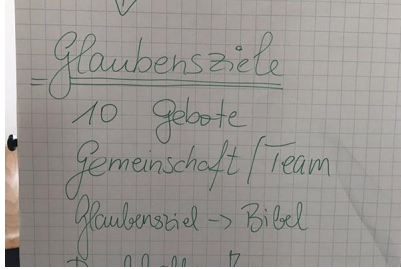 = Glaubensziele
10 Gebote
Gemeinschaft/Team
Glaubensziel -> Bibel